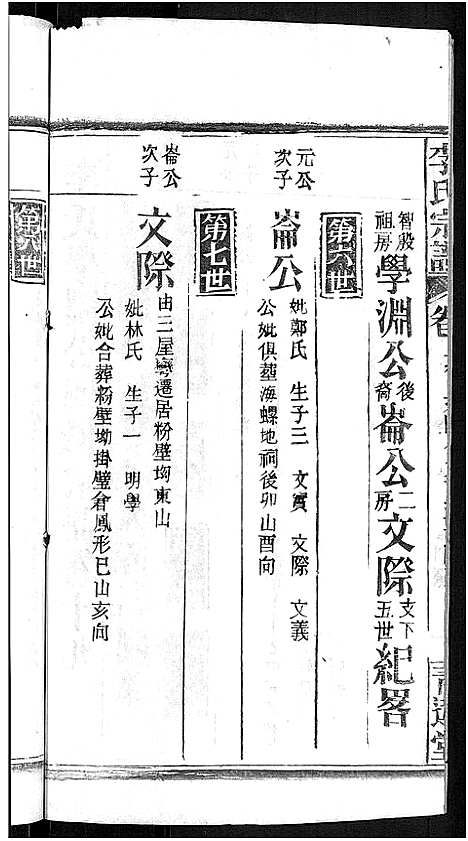 李氏宗譜 卷
智殿祖房 學淵公後裔 崙公二房 文際支下五世 紀畧
第六世
元公次子
崙公
妣鄭氏 生子三 文實 文際 文義
公妣俱葬海螺地祠後卯山酉向
第七世
崙公次子
文際
由三屋灣遷居粉壁坳東山
妣林氏 生子一 明學
公妣合葬粉壁坳掛壁倉鳳形巳山亥向
第八世